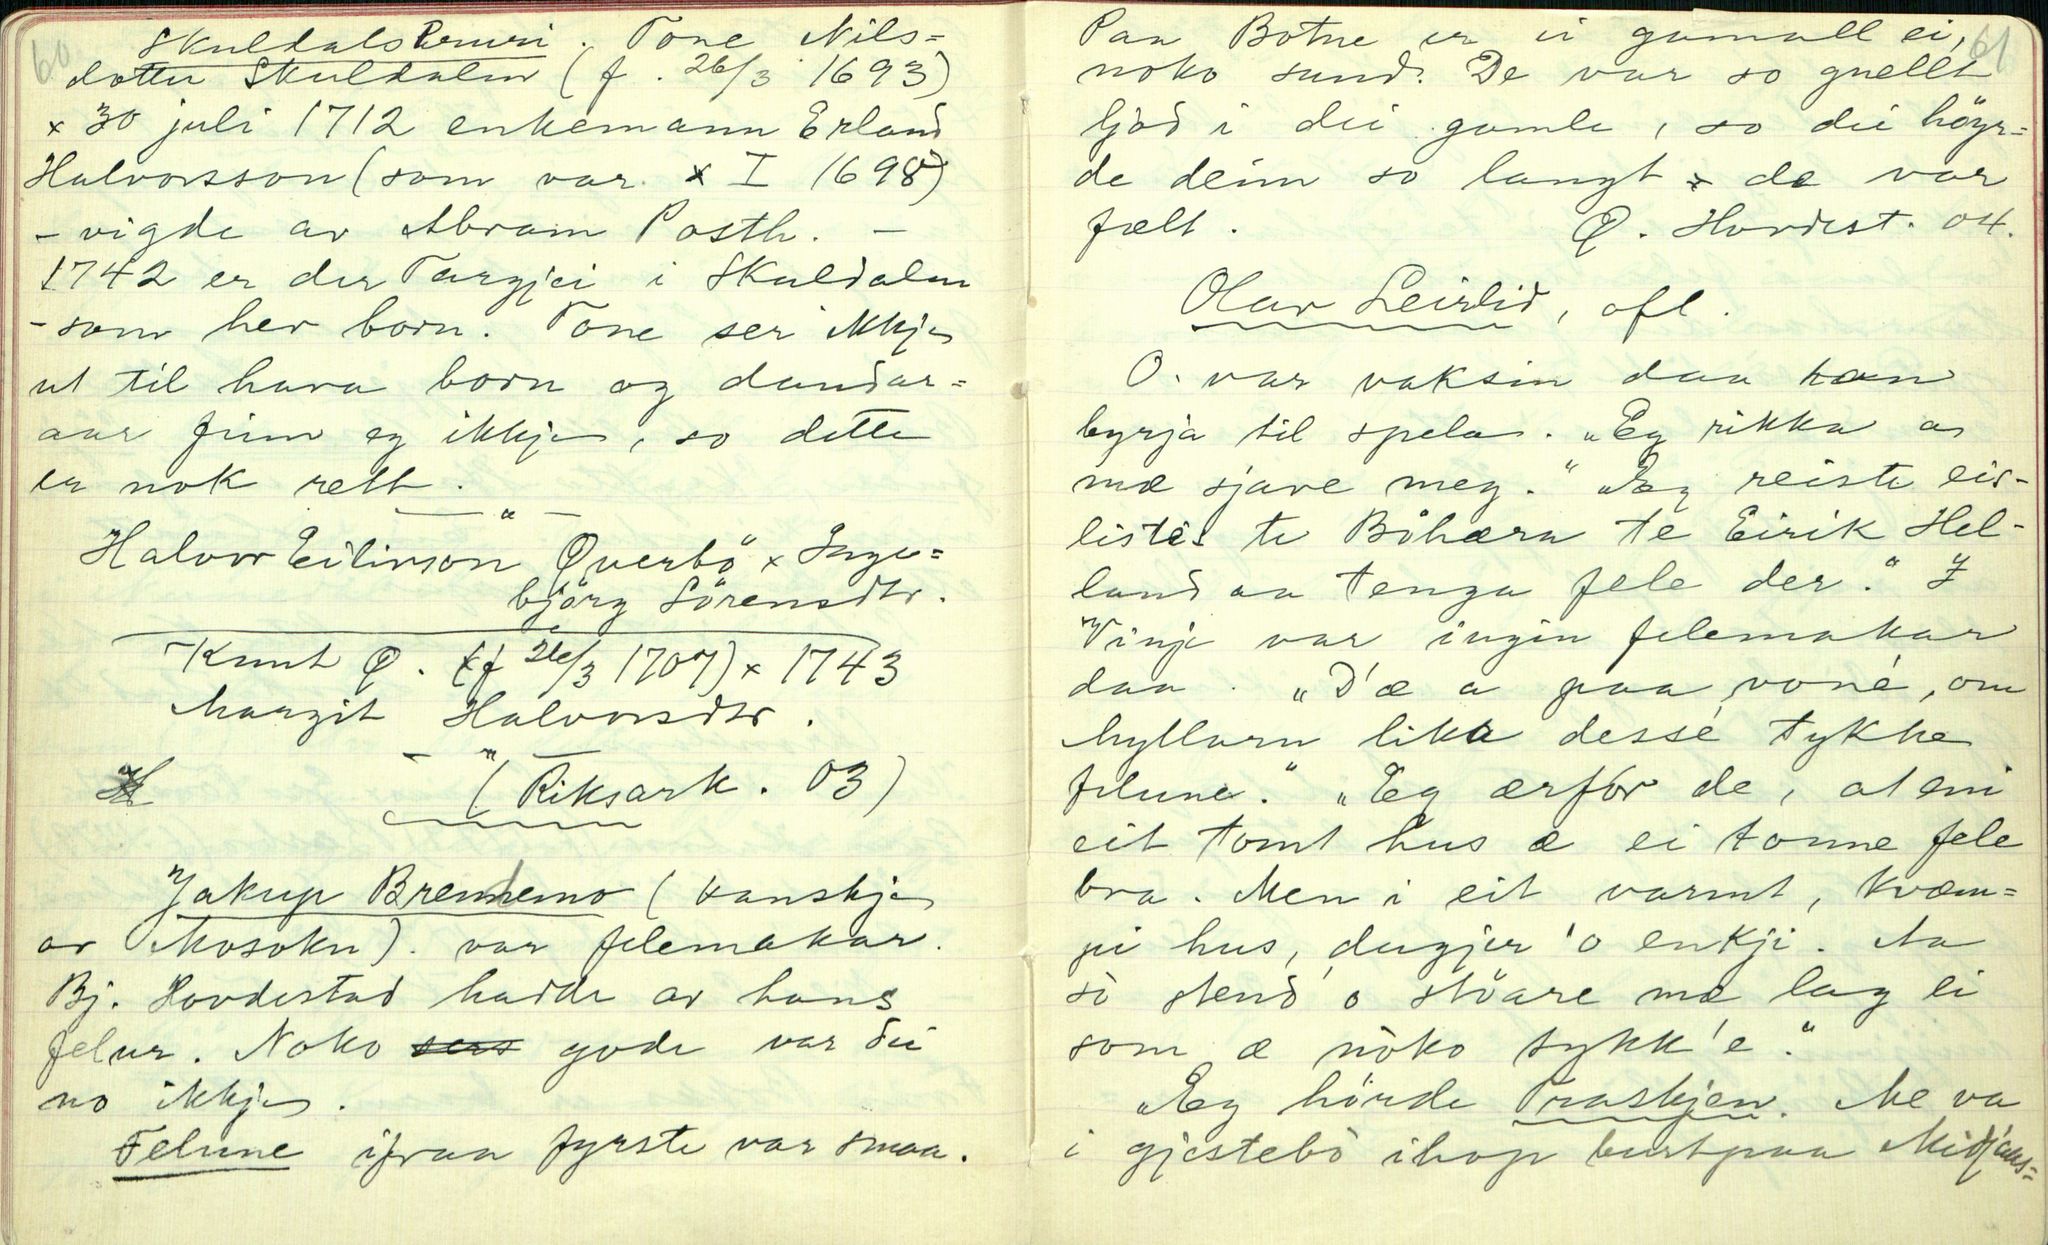 60
Skuldalsbruri. Tone Nils=
dotter Skuldalen (f. 26/3 1693)
x 30 juli 1712 enkemann Erland
Halvorsson (som var x I 1698)
- vigde av Abram Posth. -
1742 er der Targjei i Skuldalen
- som hev born. Tone ser ikkje
ut til hava born og daudar=
aar finn eg ikkje, so dette
er nok rett.
— " —
Halvor Eilivson Qverbö x Inge=
björg Sörensdtr.
Knut Q. (f 26/3 1707) x 1743
Margit Halvorsdtr.
— " —
(Riksark. 03)
Jakup Brennemo (kanskje
av Mosokn). var felemakar.
Bj. Hovdestad hadde av hans
felur. Noko gode var dei
no ikkje.
Felune ifraa fyrste var smaa.
61
Paa Botne er ei gamall ei,
noko sund. De var so gnellt
ljod i dei gamle, so dei höyr=
de deim so langt x de var
fælt. Q. Hovdest. 04.
Olav Leirlid, ofl.
O. var vaksin daa han
byrja til spela. „Eg rikka a
mæ sjave meg." „Eg reiste eis-
liste te Böhæra te Eirik Hel-
land aa tenga fele der." I
Vinje var ingin felemakar
daa. „D'æ a paa voné, om
hyllarn lika dessé tykke
felune." „Eg ærfor de, at eni
eit tomt hus æ ei tonne fele
bra. Men i eit varmt, kvæm=
pi hus, dugjer 'o enkji. Aa
sò stend 'o stöare mæ lag ei
som æ nòko tykk'e."
„Eg hörde Traskjen. Me va
i gjestebò ihop burtpaa Midjaas=